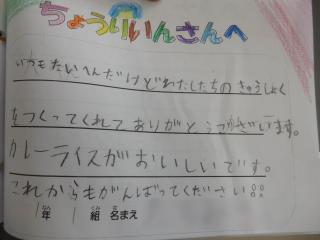 ちょうりいんさんへ
いつもたいへんだけどわたしたちのきゅうしょく
をつくってくれてありがとうございます。
カレーライスがおいしいです。
これからもがんばってください!!
1年 1組 名まえ
ねん くみ な